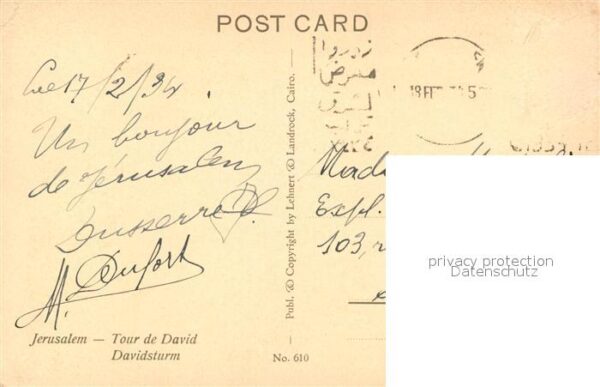 POST CARD
Le 17/2/34.
Un bonjour
de Jérusalem
Dusserre
M. Dufort
Jerusalem — Tour de David
Davidsturm
Publ. & Copyright by Lehnert & Landrock, Cairo.
No. 610
زوروا
معرض
18 FE
5
Expl.
103,
privacy protection
Datenschutz